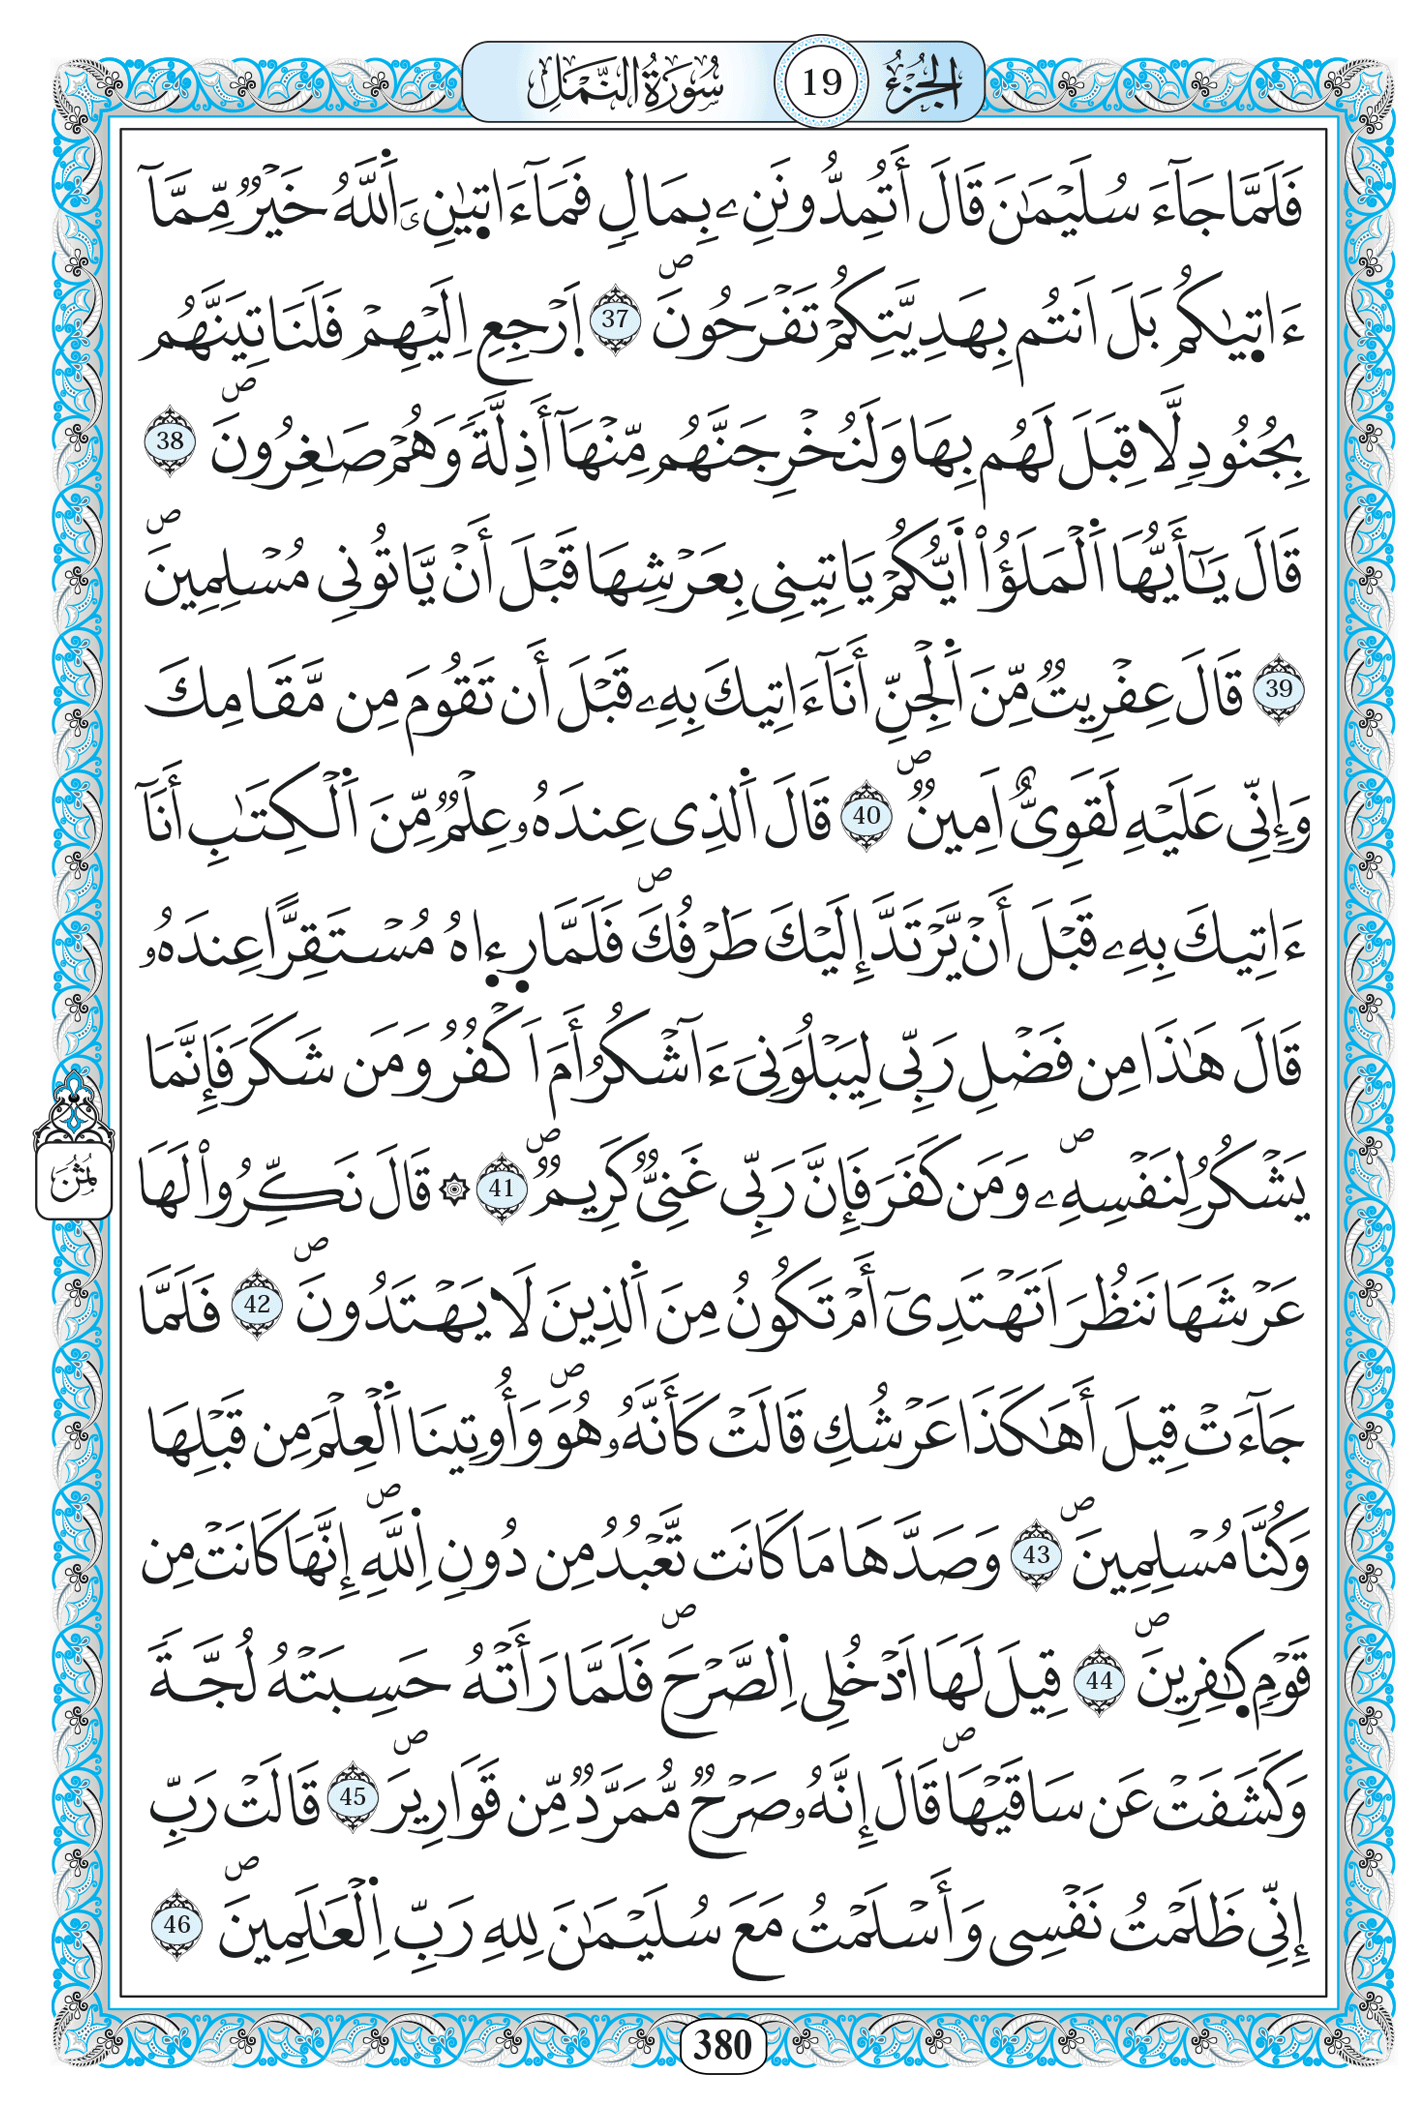 سُورَةُ النَّمْلِ 19 الجُزْءُ
فَلَمَّا جَآءَ سُلَيْمَٰنَ قَالَ أَتُمِدُّونَنِۦ بِمَالٖ فَمَآ ءَاتٜيٰنِۦَ اَ۬للَّهُ خَيْرٞ مِّمَّآ
ءَاتٜيٰكُم بَلَ اَنتُم بِهَدِيَّتِكُمْ تَفْرَحُونَۖ 37 اَ۪رْجِعِ اِلَيْهِمْ فَلَنَاتِيَنَّهُم
بِجُنُودٖ لَّا قِبَلَ لَهُم بِهَا وَلَنُخْرِجَنَّهُم مِّنْهَآ أَذِلَّةٗ وَهُمْ صَٰغِرُونَۖ 38
قَالَ يَٰٓأَيُّهَا اَ۬لْمَلَؤُاْ اَيُّكُمْ يَاتِينِى بِعَرْشِهَا قَبْلَ أَنْ يَّاتُونِى مُسْلِمِينَۖ
39 قَالَ عِفْرِيتٞ مِّنَ اَ۬لْجِنِّ أَنَآ ءَاتِيكَ بِهِۦ قَبْلَ أَن تَقُومَ مِن مَّقَامِكَ
وَإِنِّى عَلَيْهِ لَقَوِىٌّ اَمِينٞۖ 40 قَالَ اَ۬لذِى عِندَهُۥ عِلْمٞ مِّنَ اَ۬لْكِتَٰبِ أَنَآ
ءَاتِيكَ بِهِۦ قَبْلَ أَنْ يَّرْتَدَّ إِلَيْكَ طَرْفُكَۖ فَلَمَّا رٜء۪اهُ مُسْتَقِرًّا عِندَهُۥ
قَالَ هَٰذَا مِن فَضْلِ رَبِّى لِيَبْلُوَنِىَ ءَآشْكُرُ أَمَ اَكْفُرُ وَمَن شَكَرَ فَإِنَّمَا
يَشْكُرُ لِنَفْسِهِۦۖ وَمَن كَفَرَ فَإِنَّ رَبِّى غَنِىّٞ كَرِيمٞۖ 41 ۞ قَالَ نَكِّرُواْ لَهَا
ثُمُن
عَرْشَهَا نَنظُرَ اَتَهْتَدِىٓ أَمْ تَكُونُ مِنَ اَ۬لذِينَ لَا يَهْتَدُونَۖ 42 فَلَمَّا
جَآءَتْ قِيلَ أَهَٰكَذَا عَرْشُكِ قَالَتْ كَأَنَّهُۥ هُوَۖ وَأُوتِينَا اَ۬لْعِلْمَ مِن قَبْلِهَا
وَكُنَّا مُسْلِمِينَۖ 43 وَصَدَّهَا مَا كَانَت تَّعْبُدُ مِن دُونِ اِ۬للَّهِۖ إِنَّهَا كَانَتْ مِن
قَوْمٖ كٰٜفِرِينَۖ 44 قِيلَ لَهَا اَ۟دْخُلِى اِ۬لصَّرْحَۖ فَلَمَّا رَأَتْهُ حَسِبَتْهُ لُجَّةٗ
وَكَشَفَتْ عَن سَاقَيْهَاۖ قَالَ إِنَّهُۥ صَرْحٞ مُّمَرَّدٞ مِّن قَوَارِيرَۖ 45 قَالَتْ رَبِّ
إِنِّى ظَلَمْتُ نَفْسِى وَأَسْلَمْتُ مَعَ سُلَيْمَٰنَ لِلهِ رَبِّ اِ۬لْعَٰلَمِينَۖ 46
380